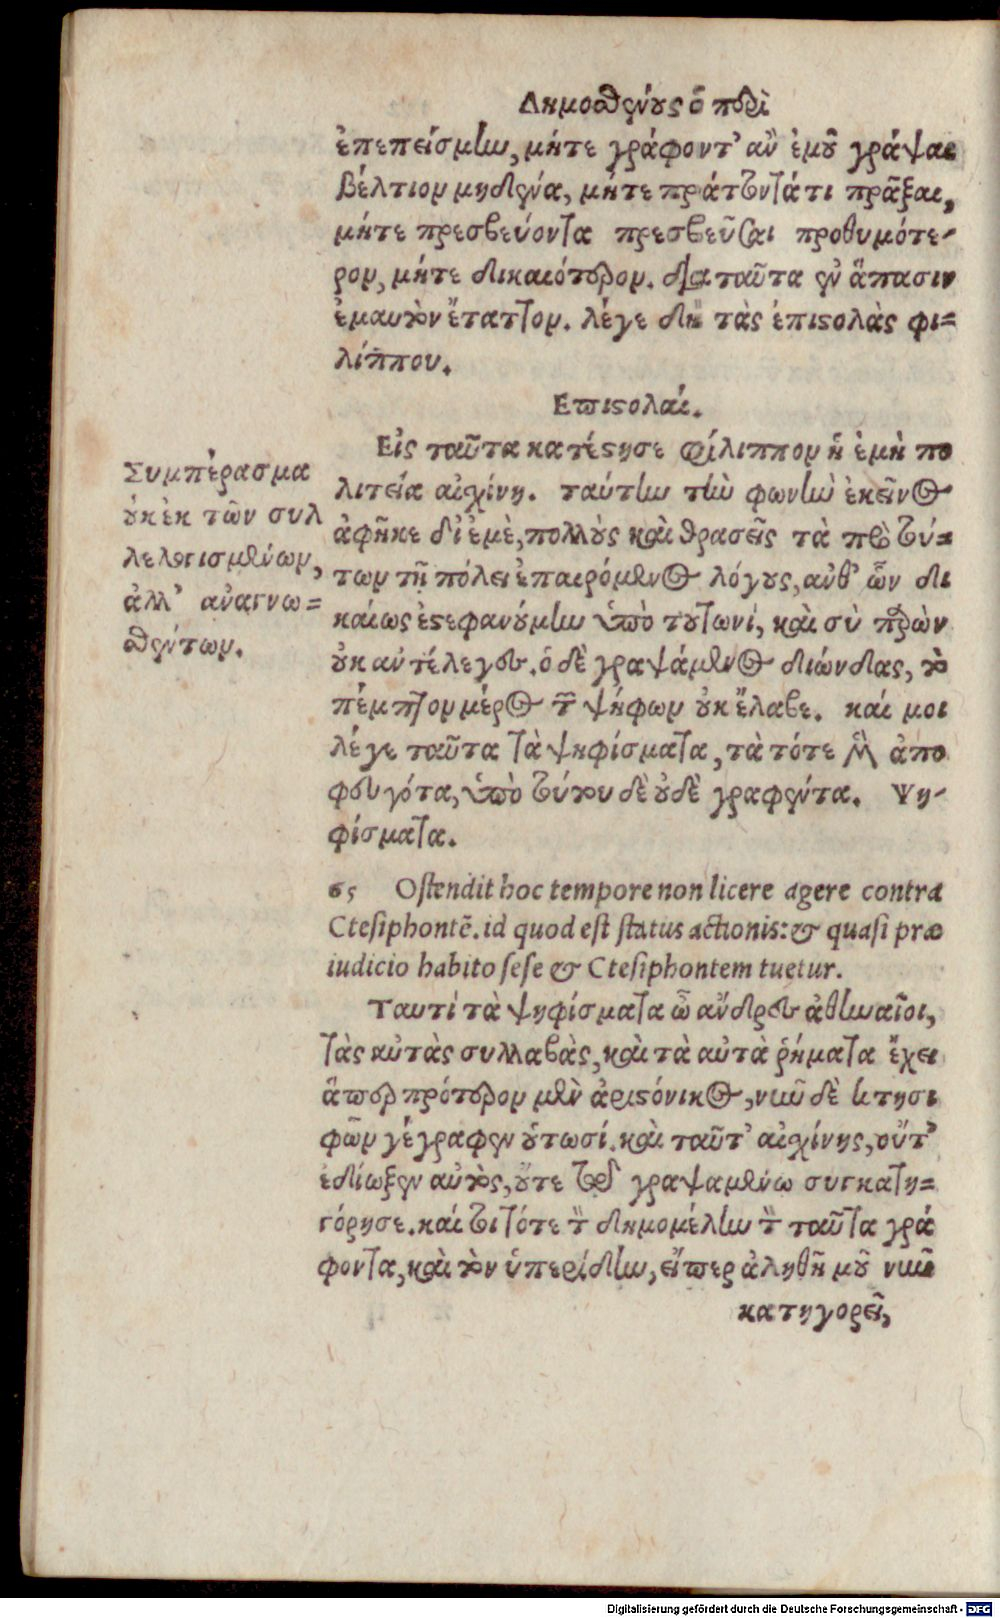 Δημοσθένους ὁ περὶ
ἐπεπείσμην, μήτε γράφοντ' ἂν ἐμοῦ γράψαι
βέλτιον μηδένα, μήτε πράττοντά τι πρᾶξαι,
μήτε πρεσβεύοντα πρεσβεῦσαι προθυμότε-
ρον, μήτε δικαιότερον. διὰ ταῦτα ἐν ἅπασιν
ἐμαυτὸν ἔταττον. λέγε δὴ τὰς ἐπιστολὰς φι=
λίππου.
Επιστολαί.
Συμπέρασμα
οὐκ ἐκ τῶν συλ
λελογισμένων,
ἀλλ' ἀναγνω=
σθέντων.
Εἰς ταῦτα κατέστησε Φίλιππον ἡ ἐμὴ πο
λιτεία αἰσχίνη. ταύτην τὴν φωνὴν ἐκεῖνος
ἀφῆκε δι' ἐμὲ, πολλοὺς καὶ θρασεῖς τὰ πρὸ τού=
των τῇ πόλει ἐπαιρόμενος λόγους, ἀνθ' ὧν δι
καίως ἐστεφανούμην ὑπὸ τουτωνί, καὶ σὺ παρὼν
οὐκ ἀντέλεγες. ὁ δὲ γραψάμενος διώνδας, τὸ
πέμπτον μέρος τῶν ψήφων οὐκ ἔλαβε. καί μοι
λέγε ταῦτα τὰ ψηφίσματα, τὰ τότε μὲν ἀπο
φευγότα, ὑπὸ τούτου δὲ οὐδὲ γραφέντα. Ψη-
φίσματα.
65 Ostendit hoc tempore non licere agere contra
Ctesiphontē. id quod est status actionis: & quasi præ
iudicio habito sese & Ctesiphontem tuetur.
Ταυτὶ τὰ ψηφίσματα ὦ ἄνδρες ἀθηναῖοι,
τὰς αὐτὰς συλλαβὰς, καὶ τὰ αὐτὰ ῥήματα ἔχει
ἅπερ πρότερον μὲν ἀριστόνικος, νῦν δὲ κτησι
φῶν γέγραφεν οὑτωσί. καὶ ταῦτ' αἰσχίνης, οὔτ'
ἐδίωξεν αὐτὸς, οὔτε τῷ γραψαμένῳ συγκατη=
γόρησε. καί τοι τότε τὸν δημομέλην τὸν ταῦτα γρά
φοντα, καὶ τὸν ὑπερίδην, εἴπερ ἀληθῆ μοῦ νῦν
κατηγορεῖ,
Digitalisierung gefördert durch die Deutsche Forschungsgemeinschaft - DFG